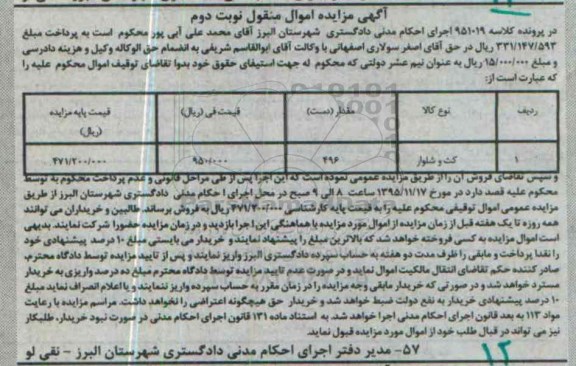 آگهی مزایده اموال منقول نوبت دوم
در پرونده کلاسه ۹۵۱۰۱۹ اجرای احکام مدنی دادگستری شهرستان البرز آقای محمد علی آبی پور محکوم است به پرداخت مبلغ
۳۳۱/۱۴۷/۵۹۳ ریال در حق آقای اصغر سولاری اصفهانی با وکالت آقای ابوالقاسم شریفی به انضمام حق الوکاله وکیل و هزینه دادرسی
و مبلغ ۱۵/۰۰۰/۰۰۰ ریال به عنوان نیم عشر دولتی که محکوم له جهت استیفای حقوق خود بدوا تقاضای توقیف اموال محکوم علیه را
که عبارت است از:
ردیف نوع کالا مقدار (دست) قیمت فی (ریال) قیمت پایه مزایده
(ریال)
۱ کت و شلوار ۴۹۶ ۹۵۰/۰۰۰ ۴۷۱/۲۰۰/۰۰۰
و سپس تقاضای فروش آن را از طریق مزایده عمومی نموده است که این اجرا پس از طی مراحل قانونی و عدم پرداخت محکوم به توسط
محکوم علیه قصد دارد در مورخ ۱۳۹۵/۱۱/۱۷ ساعت ۸ الی ۹ صبح در محل اجرای احکام مدنی دادگستری شهرستان البرز از طریق
مزایده عمومی اموال توقیفی محکوم علیه را به قیمت پایه کارشناسی ۴۷۱/۲۰۰/۰۰۰ ریال به فروش برساند. طالبین و خریداران می توانند
همه روزه تا یک هفته قبل از زمان مزایده از اموال مورد مزایده با هماهنگی این اجرا بازدید و در زمان مزایده حضورا شرکت نمایند. بدیهی
است اموال مزایده به کسی فروخته خواهد شد که بالاترین مبلغ را پیشنهاد نمایند و خریدار می بایستی مبلغ ۱۰ درصد پیشنهادی خود
را نقدا پرداخت و مابقی را ظرف مدت دو هفته به حساب سپرده دادگستری البرز واریز نمایند و پس از تایید مزایده توسط دادگاه محترم،
صادر کننده حکم تقاضای انتقال مالکیت اموال نماید و در صورت عدم تایید مزایده توسط دادگاه محترم مبلغ ده درصد واریزی به خریدار
مسترد خواهد شد و در صورتی که خریدار مابقی وجه مزایده را در زمان مقرر به حساب سپرده واریز ننمایند و یا اعلام انصراف نماید مبلغ
۱۰ درصد پیشنهادی خریدار به نفع دولت ضبط خواهد شد و خریدار حق هیچگونه اعتراضی را نخواهد داشت. مراسم مزایده با رعایت
مواد ۱۱۳ به بعد قانون اجرای احکام مدنی اجرا خواهد شد. به استناد ماده ۱۳۱ قانون اجرای احکام مدنی در صورت نبود خریدار، طلبکار
نیز می تواند در قبال طلب خود از اموال مورد مزایده قبول نماید.
۵۷- مدیر دفتر اجرای احکام مدنی دادگستری شهرستان البرز - نقی لو
۱۲